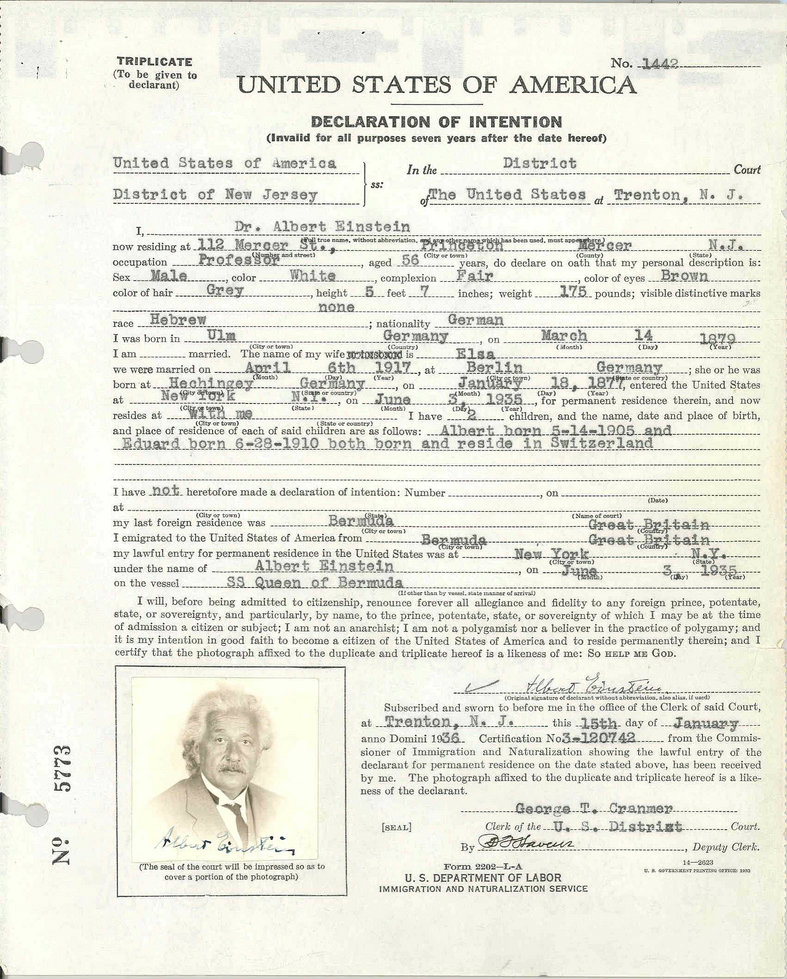 TRIPLICATE
(To be given to
declarant)
No. 1442
UNITED STATES OF AMERICA
DECLARATION OF INTENTION
(Invalid for all purposes seven years after the date hereof)
United States of America
District of New Jersey
ss:
In the District Court
of The United States at Trenton, N. J.
I, Dr. Albert Einstein
(Full true name, without abbreviation, and any other name which has been used, must appear here)
now residing at 112 Mercer St., Princeton Mercer N.J.
(Number and street) (City or town) (County) (State)
occupation Professor, aged 56 years, do declare on oath that my personal description is:
Sex Male, color White, complexion Fair, color of eyes Brown
color of hair Grey, height 5 feet 7 inches; weight 175 pounds; visible distinctive marks
none
race Hebrew; nationality German
I was born in Ulm Germany, on March 14 1879
(City or town) (Country) (Month) (Day) (Year)
I am married. The name of my wife is Elsa
we were married on April 6th 1917, at Berlin Germany; she or he was
(Month) (Day) (Year) (State or country)
born at Hechingey Germany, on January 18, 1877, entered the United States
(City or town) (State or country) (Month) (Day) (Year)
at New York N.Y., on June 3, 1935, for permanent residence therein, and now
(City or town) (State) (Month) (Day) (Year)
resides at with me I have 2 children, and the name, date and place of birth,
(City or town) (State or country)
and place of residence of each of said children are as follows: Albert born 5-14-1905 and
Eduard born 6-28-1910 both born and reside in Switzerland
I have not heretofore made a declaration of intention: Number , on
(Date)
at
(City or town) (State) (Name of court)
my last foreign residence was Bermuda Great Britain
(City or town) (Country)
I emigrated to the United States of America from Bermuda Great Britain
(City or town) (Country)
my lawful entry for permanent residence in the United States was at New York N.Y.
(City or town) (State)
under the name of Albert Einstein, on June 3, 1935
(Month) (Day) (Year)
on the vessel SS Queen of Bermuda
(If other than by vessel, state manner of arrival)
I will, before being admitted to citizenship, renounce forever all allegiance and fidelity to any foreign prince, potentate,
state, or sovereignty, and particularly, by name, to the prince, potentate, state, or sovereignty of which I may be at the time
of admission a citizen or subject; I am not an anarchist; I am not a polygamist nor a believer in the practice of polygamy; and
it is my intention in good faith to become a citizen of the United States of America and to reside permanently therein; and I
certify that the photograph affixed to the duplicate and triplicate hereof is a likeness of me: SO HELP ME GOD.
Albert Einstein
(Original signature of declarant without abbreviation, also alias, if used)
Subscribed and sworn to before me in the office of the Clerk of said Court,
at Trenton, N. J. this 15th day of January
anno Domini 1936 Certification No 3-120742 from the Commis-
sioner of Immigration and Naturalization showing the lawful entry of the
declarant for permanent residence on the date stated above, has been received
by me. The photograph affixed to the duplicate and triplicate hereof is a like-
ness of the declarant.
George T. Cranmer
[SEAL] Clerk of the U. S. District Court.
By , Deputy Clerk.
Form 2202-L-A
U. S. DEPARTMENT OF LABOR
IMMIGRATION AND NATURALIZATION SERVICE
14—2623
U. S. GOVERNMENT PRINTING OFFICE
Albert Einstein
(The seal of the court will be impressed so as to
cover a portion of the photograph)
No 5773